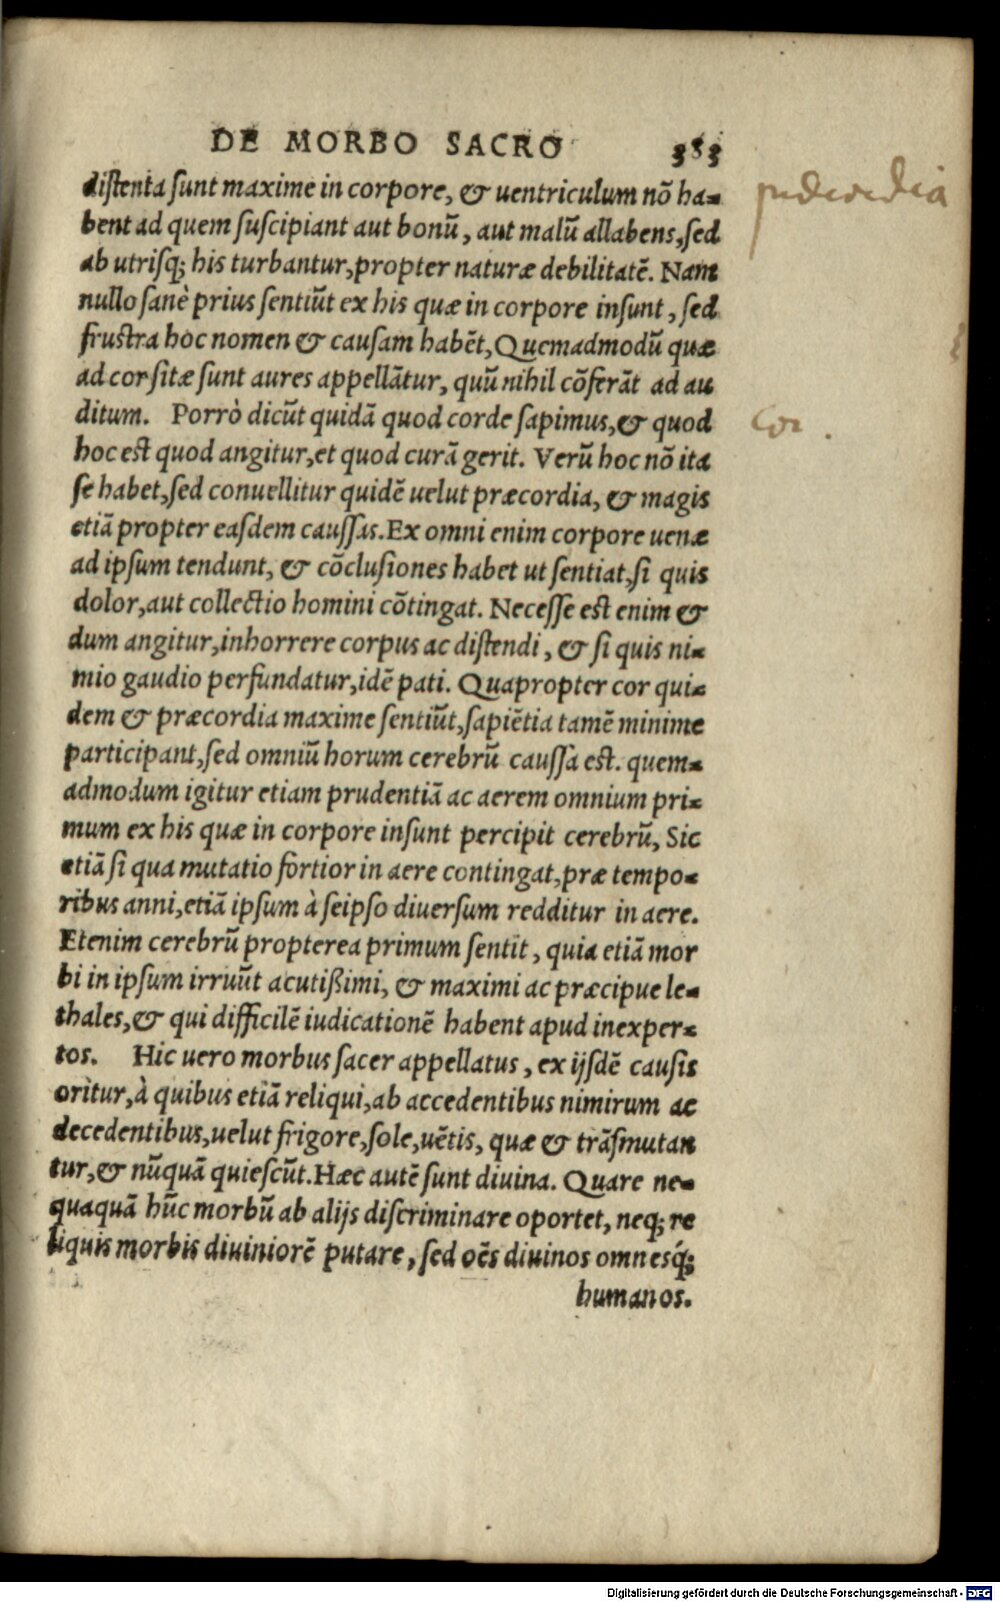 DE MORBO SACRO 383
distenta sunt maxime in corpore, & uentriculum nõ ha-
bent ad quem suscipiant aut bonũ, aut malũ allabens, sed
ab utrisq; his turbantur, propter naturæ debilitatẽ. Nam
nullo sanè prius sentiũt ex his quæ in corpore insunt, sed
frustra hoc nomen & causam habẽt, Quemadmodũ quæ
ad cor sitæ sunt aures appellãtur, quũ nihil cõferãt ad au
ditum. Porrò dicũt quidã quod corde sapimus, & quod
hoc est quod angitur, et quod curã gerit. Verũ hoc nõ ita
se habet, sed conuellitur quidẽ uelut præcordia, & magis
etiã propter easdem caussas. Ex omni enim corpore uenæ
ad ipsum tendunt, & cõclusiones habet ut sentiat, si quis
dolor, aut collectio homini cõtingat. Necesse est enim &
dum angitur, inhorrere corpus ac distendi, & si quis ni-
mio gaudio perfundatur, idẽ pati. Quapropter cor qui-
dem & præcordia maxime sentiũt, sapiẽtia tamẽ minime
participant, sed omniũ horum cerebrũ caussa est. quem-
admodum igitur etiam prudentiã ac aerem omnium pri-
mum ex his quæ in corpore insunt percipit cerebrũ, Sic
etiã si qua mutatio fortior in aere contingat, præ tempo-
ribus anni, etiã ipsum à seipso diuersum redditur in aere.
Etenim cerebrũ propterea primum sentit, quia etiã mor
bi in ipsum irruũt acutißimi, & maximi ac præcipue le-
thales, & qui difficilẽ iudicationẽ habent apud inexper-
tos. Hic uero morbus sacer appellatus, ex ijsdẽ causis
oritur, à quibus etiã reliqui, ab accedentibus nimirum ac
decedentibus, uelut frigore, sole, uẽtis, quæ & trãsmutan
tur, & nũquã quiescũt. Hæc autẽ sunt diuina. Quare ne-
quaquã hũc morbũ ab alijs discriminare oportet, neq; re
liquis morbis diuiniorẽ putare, sed oẽs diuinos omnesq́;
humanos.
Cor.
Digitalisierung gefördert durch die Deutsche Forschungsgemeinschaft - DFG